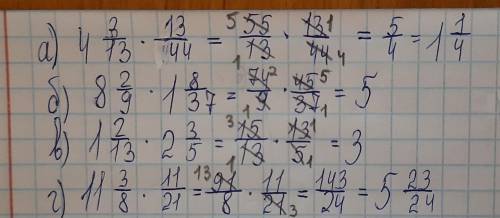 а) 4 3/13 · 13/44 = 55/13 · 13/44 = 5/4 = 1 1/4
б) 8 2/9 · 1 8/37 = 74/9 · 45/37 = 5
в) 1 2/13 · 2 3/5 = 15/13 · 13/5 = 3
г) 11 3/8 · 11/21 = 91/8 · 11/21 = 143/24 = 5 23/24